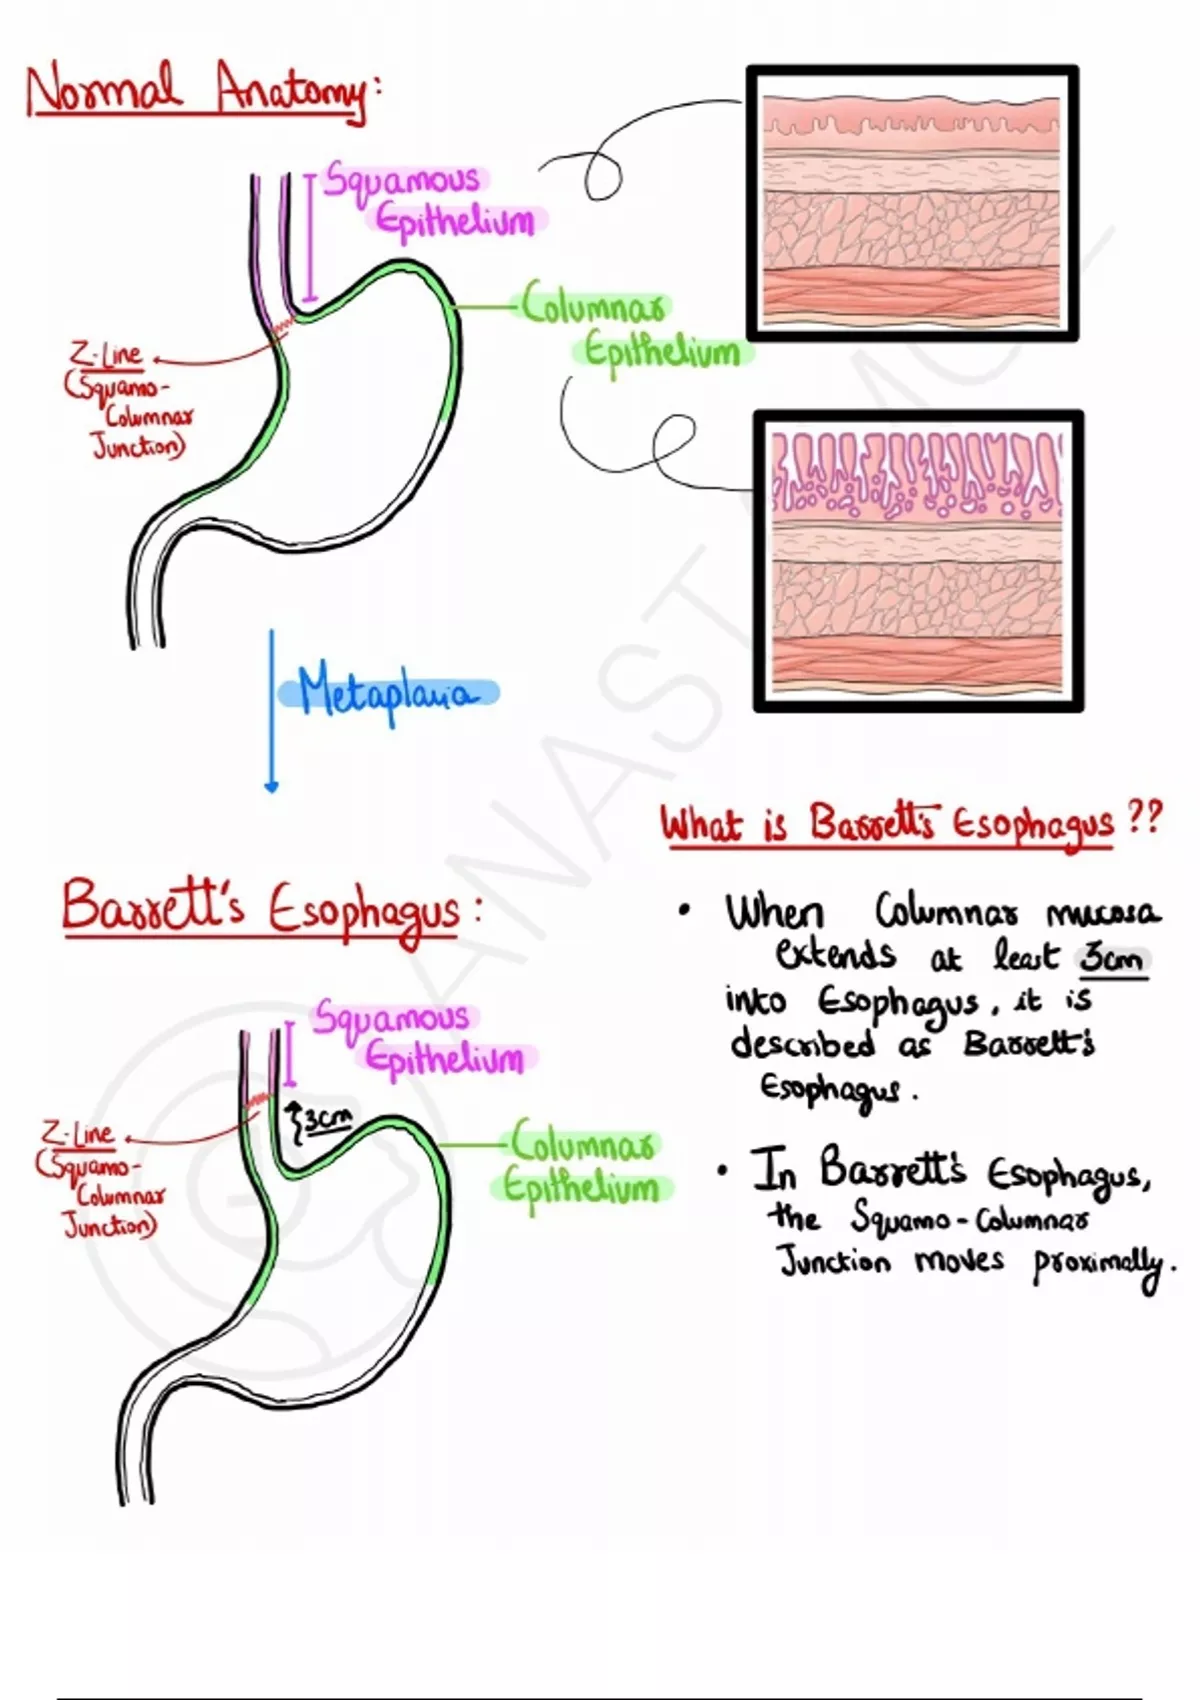 Normal Anatomy:
Squamous
Epithelium
Columnar
Epithelium
Z-Line
(Squamo-
Columnar
Junction)
Metaplasia
What is Barrett's Esophagus ??
Barrett's Esophagus:
• When Columnar mucosa
extends at least 3cm
into Esophagus, it is
described as Barrett's
Esophagus.
Squamous
Epithelium
3cm
Z-Line
(Squamo-
Columnar
Junction)
Columnar
Epithelium
• In Barrett's Esophagus,
the Squamo-Columnar
Junction moves proximally.